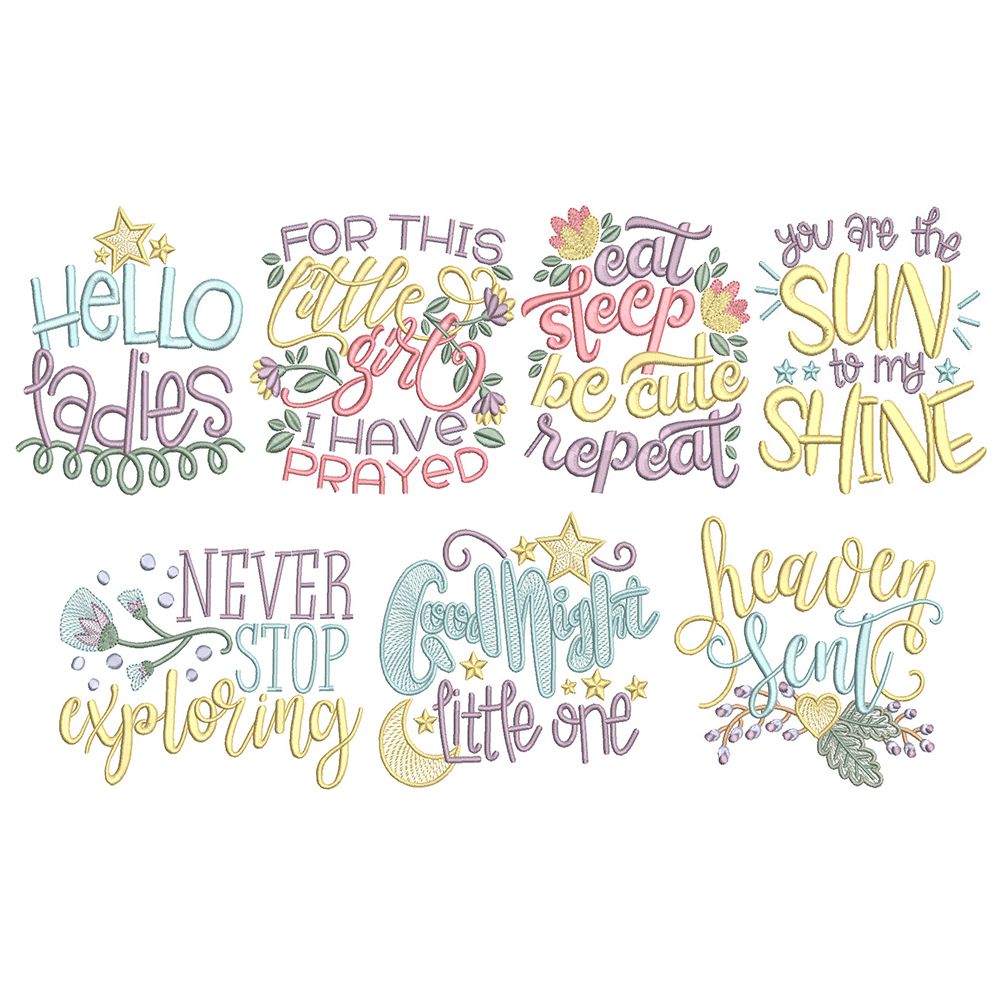 HeLLO
ladies
FOR THIS
little
girl
I HAVE
PRAYED
eat
sleep
be cute
repeat
you are the
SUN
to my
SHINE
NEVER
STOP
exploring
Good Night
little one
heaven
sent